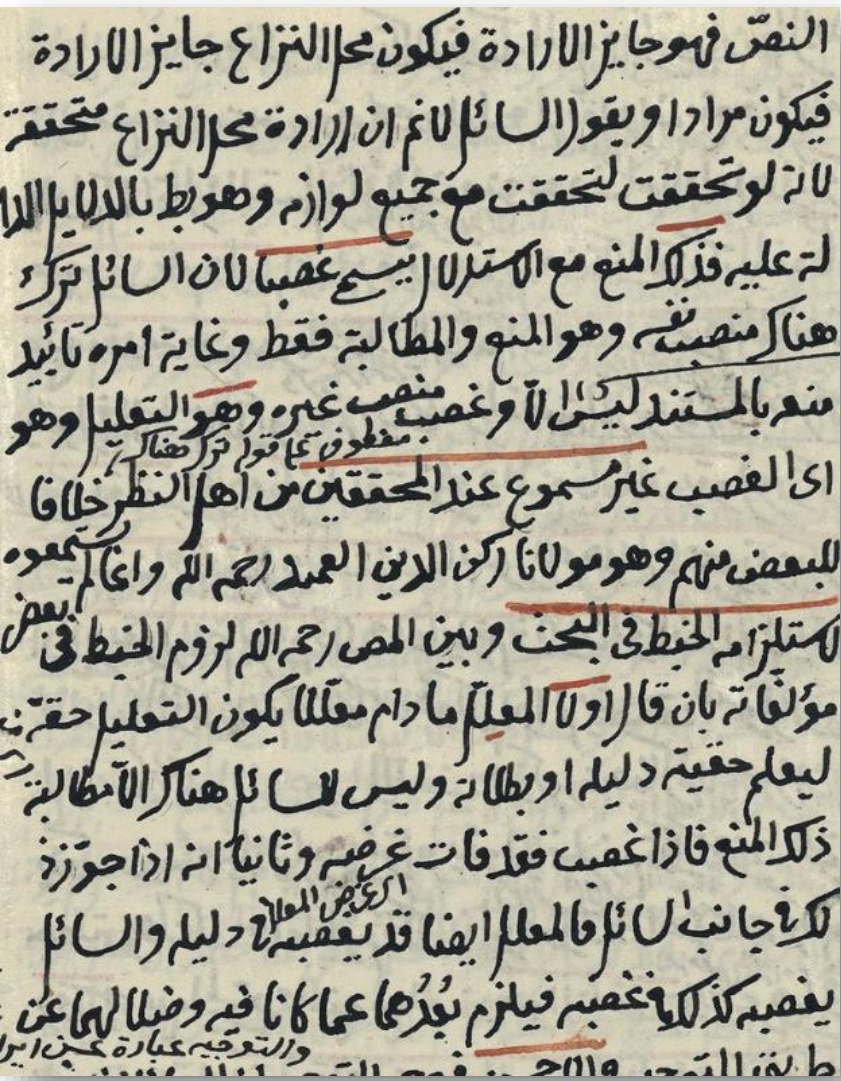 النصّ فهو جايز الارادة فيكون محل النزاع جايز الارادة
فيكون مرادا او يقول السائل لانم ان ارادة محل النزاع متحققة
لانه لو تحققت لتحققت مع جميع لوازمه وهو بط بالدلايل الدا
لة عليه فذلك المنع مع الاستدلال يسمى غصبا لان السائل ترك
هناك منصب نفسه وهو المنع والمطالبة فقط وغاية امره تائيد
منعه بالمستند ليس الاّ وغصب منصب غيره وهو التعليل وهو
معطوف على قوله ترك هناك
اى الغصب غير مسموع عند المحققين من اهل النظر خلافا
للبعض منهم وهو مولانا ركن الدين العميد رحمه الله وانما لم يسمعوه
لاستلزامه الخبط فى البحث وبين المص رحمه الله لزوم الخبط فى بعض
مؤلفاته بان قال اولا المعلّل ما دام معللا يكون التعليل حقه
ليعلم حقية دليله او بطلانه وليس للسائل هناك الاّ مطالبة
ذلك المنع فاذا غصب فقد فات غرضه وثانيا انه اذا جوّز ذ
اى غرض المعلل
لك فى جانب السائل فالمعلل ايضا قد يغصبه فى دليله والسائل
يغصبه كذلك فى غصبه فيلزم بُعْدُهما عما كانا فيه وضلالهما عن
والتوجيه عبارة عن
طريق التوجيه